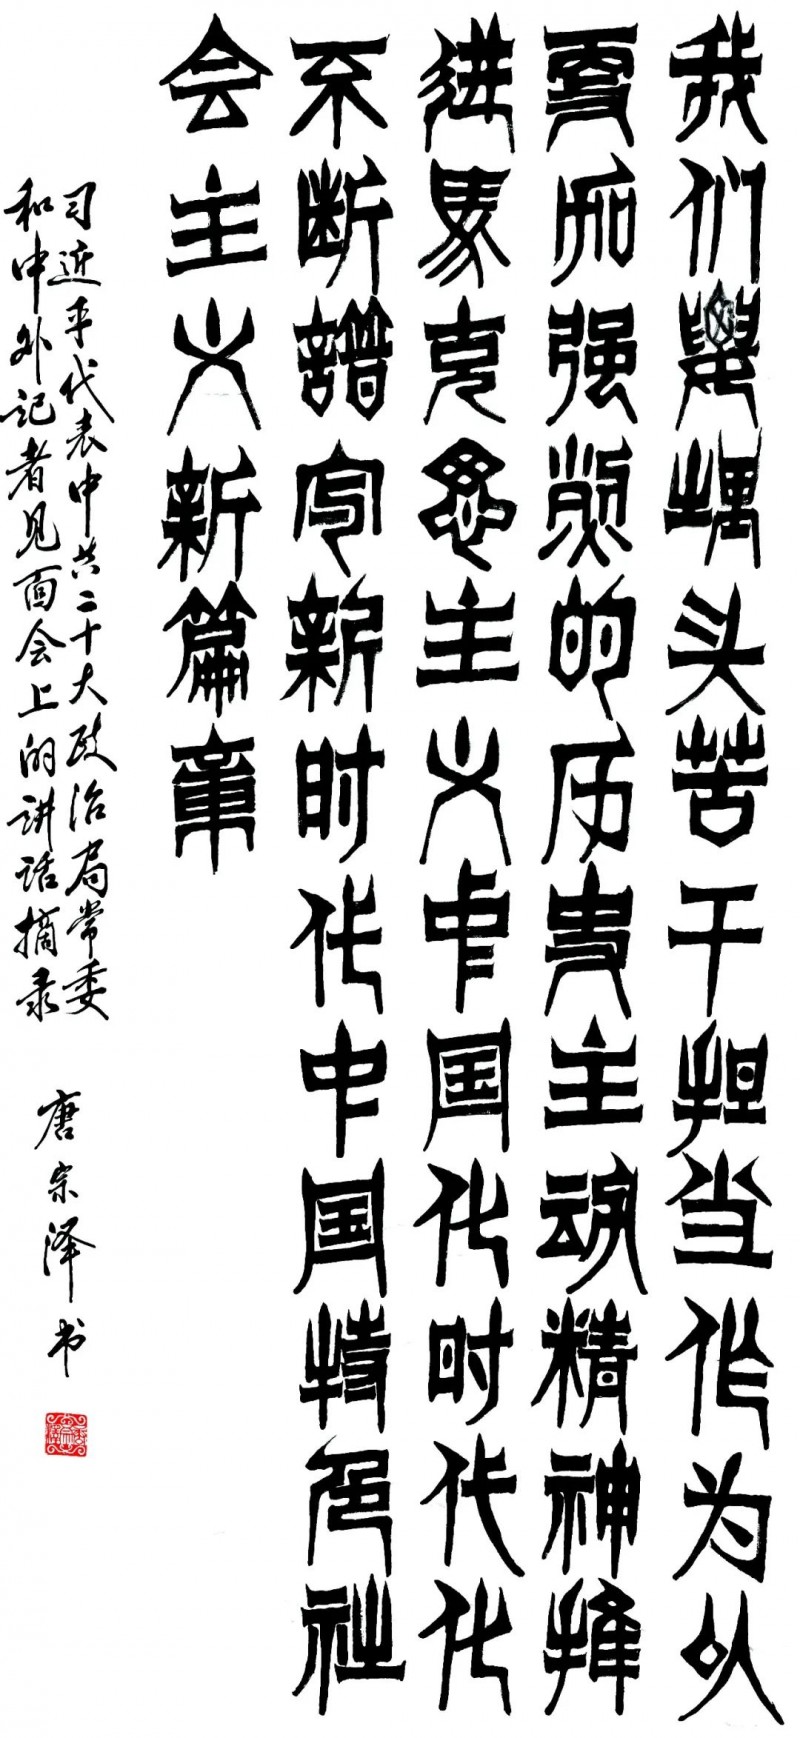 我们要埋头苦干担当作为以
更加强烈的历史主动精神推
进马克思主义中国化时代化
不断谱写新时代中国特色社
会主义新篇章
习近平代表中共二十大政治局常委
和中外记者见面会上的讲话摘录
唐宗泽书